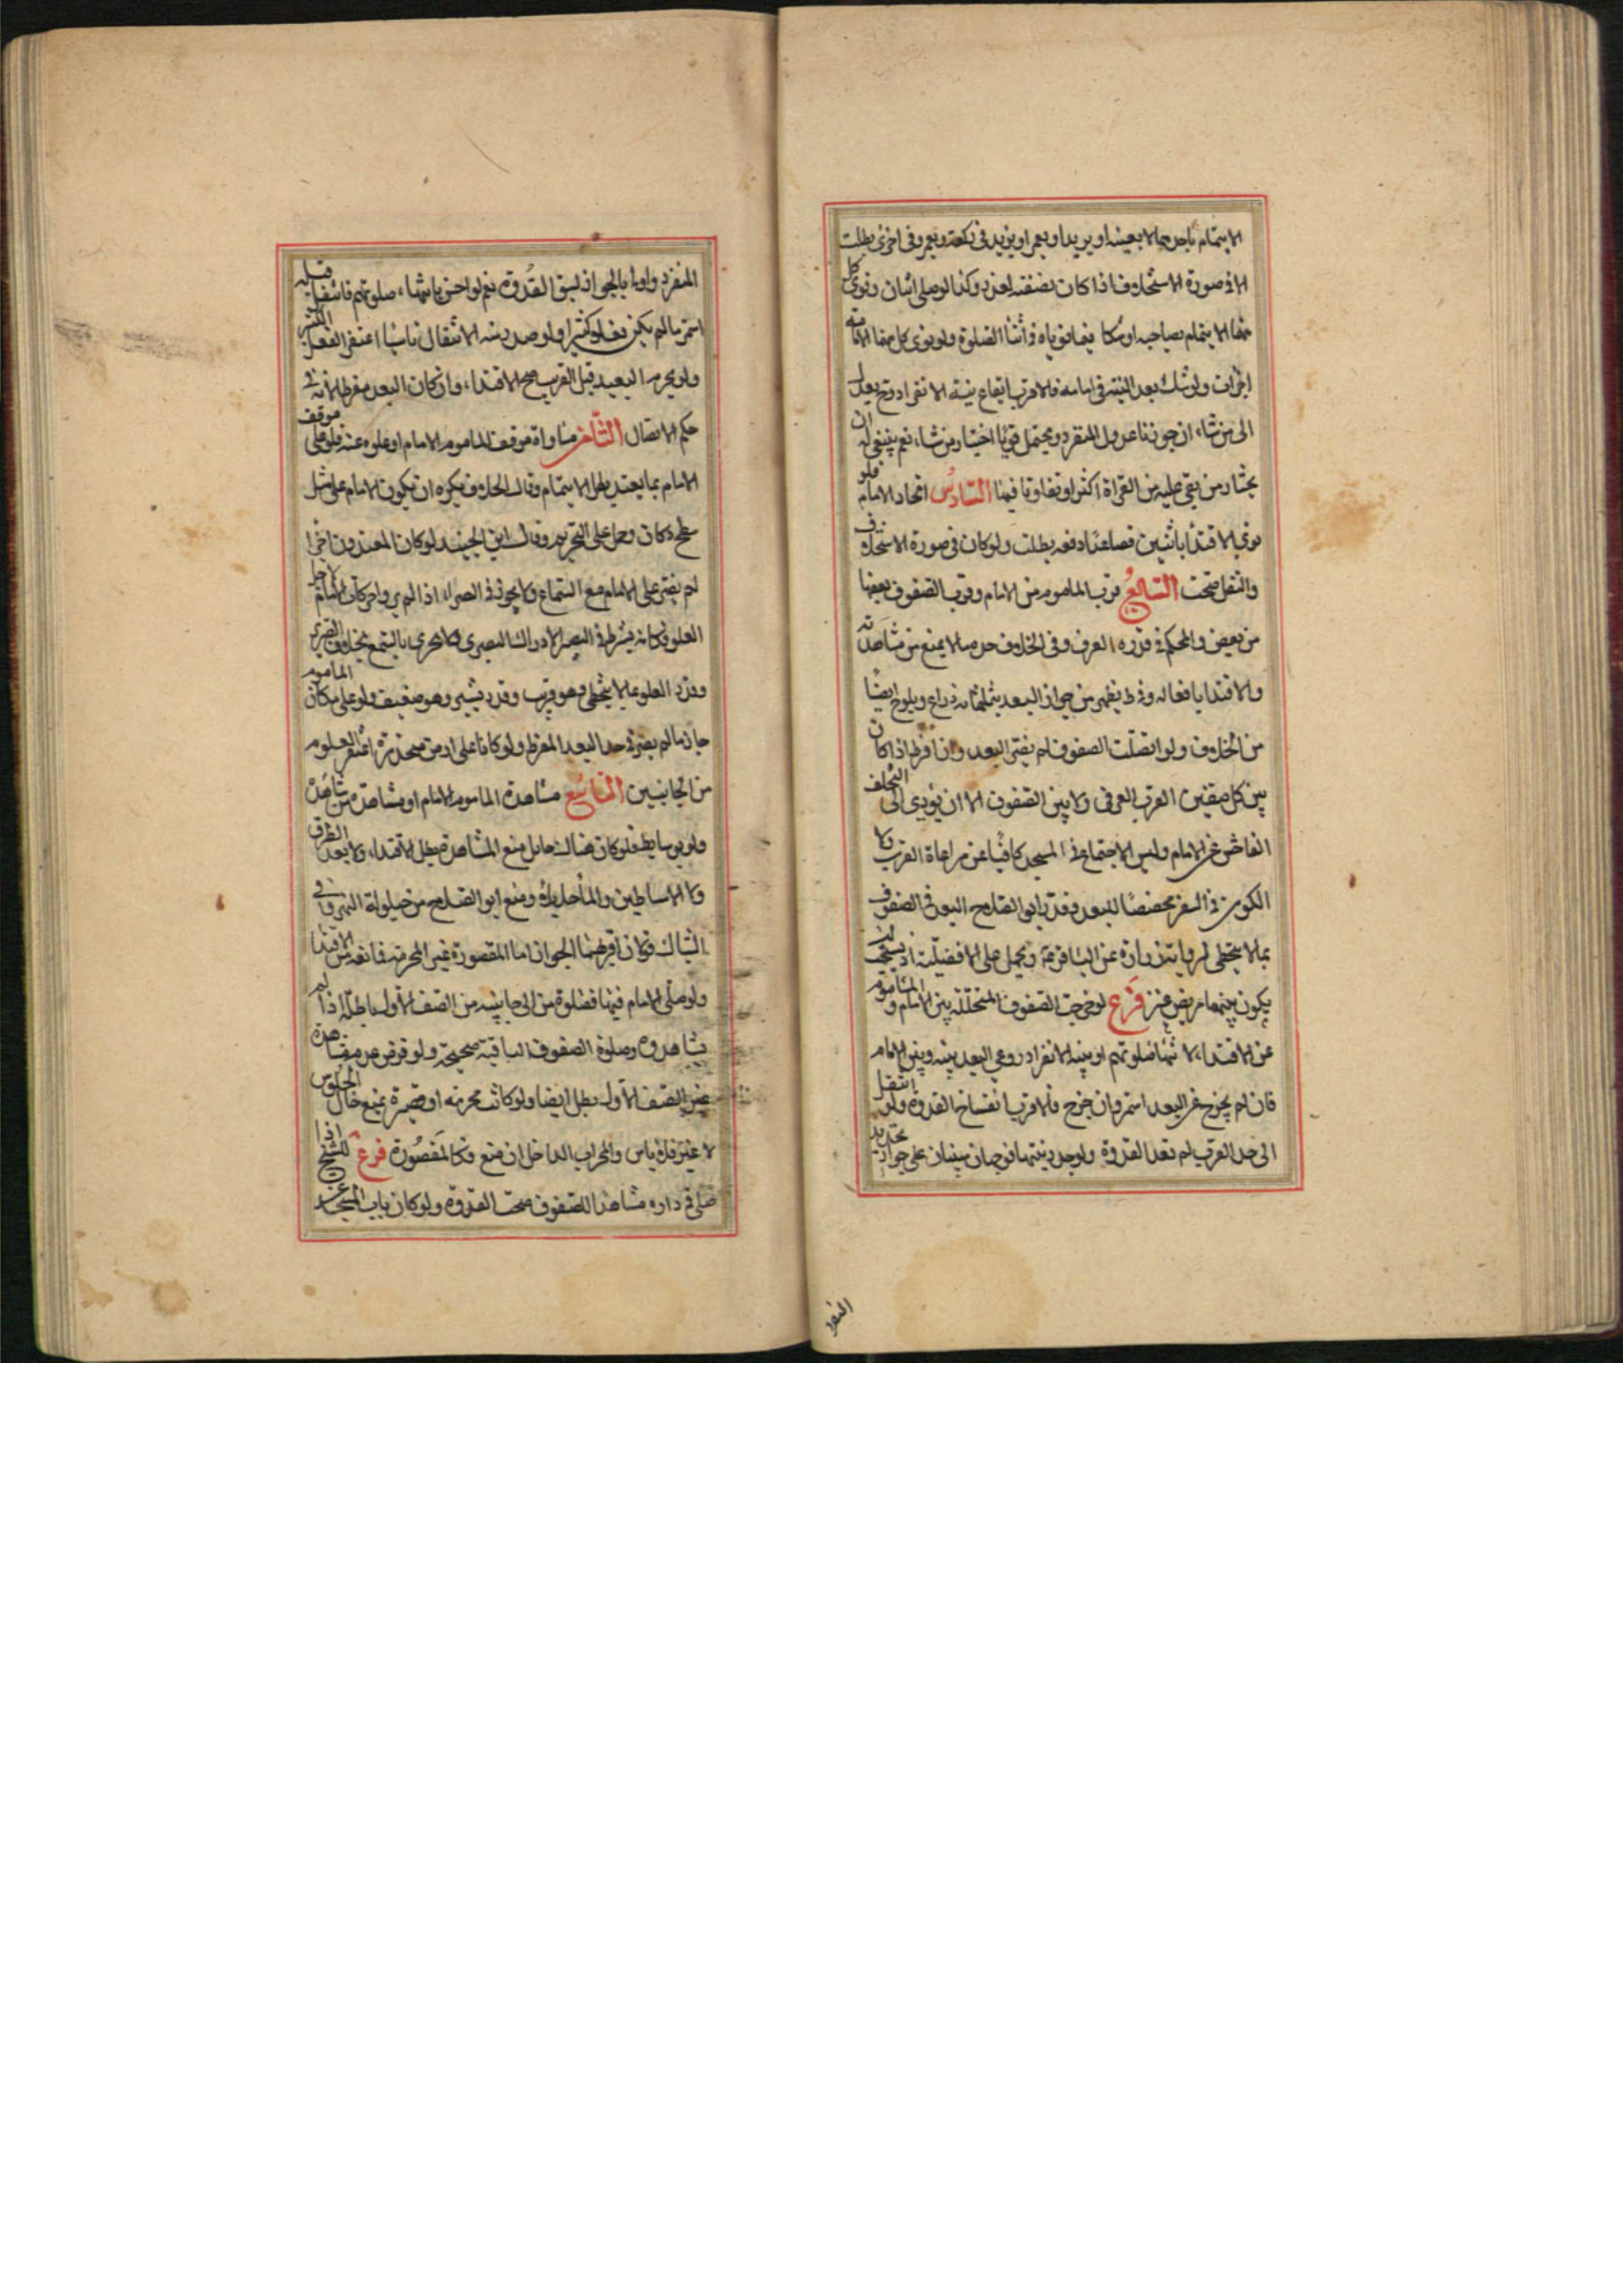 الايتمام باحدهما لا بعينه او بزيد او بعمرو او بزيد في ركعة وبعمرو في اخرى بطلت
الا في صورة الاستخلاف اذا كان بصفته لعذر وكذا لو صلى اثنان ونوى كل
منهما الايتمام بصاحبه او شكا فيما نوياه في اثناء الصلوة ولو نوى كل منهما الامامة
اجزات ولو شك بعد النية في امامه فالاقرب ايقاع نية الانفراد وح يعدل
الى من شاء ان جوزنا عدول المنفرد ويحتمل قويا اختيار من شاء نعم ينبغي له ان
يختار من بقي عليه من القراة اكثر او تفاوتا فيها السادس اتحاد الامام فلو
نوى الاقتداء باثنين فصاعدا دفعه بطلت ولو كان في صورة الاستخلاف
والنقل صحت السابع قرب الماموم من الامام وقرب الصفوف بعضها
من بعض والمحكم في قدره العرف وفي الخلاف حده ما لا يمنع من مشاهدته
والاقتداء بافعاله وفي ط يظهر من جواز البعد بثلثمائه ذراع ويلوح ايضا
من الخلاف ولو اتصلت الصفوف لم يضر البعد وان افرط اذا كان
بين كل صفين القرب العرفي ولا بين الصفوف الا ان يؤدي الى التخلف
الفاحش عن الامام وليس الاجتماع في المسجد كافيا عن مراعاة القرب ولا
الكون في السفر مخصصا للبعد وقدر ابو الصلاح البعد في الصفوف
بما لا يتخطى لرواية زرارة عن الباقر ع ويحمل على الافضلية اذ يستحب ان
يكون بينهما مربض عنز فرع لو خرجت الصفوف المتخللة بين الامام والماموم
عن الاقتداء لانتهاء صلوتهم او بنية الانفراد روعي البعد بينه وبين الامام
فان لم يخرج عن البعد استمر وان خرج فالاقرب انفساخ القدوة ولو انتقل
الى حد القرب لم تعد القدوة ولو جدد نيتها فوجهان مبنيان على جواز تجديد
المنفرد
المنفرد واولى بالجواز لسبق القدوة نعم لو احس بانتهاء صلوتهم فانتقل قبله
استمر ما لم يكن بفعل كثير ولو صدر منه الانتقال ناسيا اغتفر الفعل الكثير
ولو تحرم البعيد قبل القريب صح الاقتداء وان كان البعد مفرطا لانه في
حكم الاتصال الثامن مساواة موقف الماموم الامام او علوه عنه فلو علا موقف
الامام بما يعتد بطل الايتمام وقال الخلاف يكره ان يكون الامام على مثل
سطح دكان وحمل على التحريم وقال ابن الجنيد لو كان المقتدون اضرا
لم يضر علو الامام مع السماع ولا يجوز في البصراء اذا لم يروا حركات الامام لاجل
العلو وكانه يشترط في البصر الادراك البصري فلا يجزي بالسمع بخلاف الضرير
وقدر العلو بما لا يتخطى وهو قريب وقدر بشبر وهو ضعيف ولو علا مكان الماموم
جاز ما لم يصر في حد البعد المفرط ولو كانا على ارض منحدرة اغتفر العلو
من الجانبين التاسع مشاهدة الماموم الامام او مشاهدة من شاهده
ولو بوسايط فلو كان هناك حايل منع المشاهدة بطل الاقتداء ولا يعد الطرق
ولا الاساطين والماء حايلا ومنع ابو الصلاح من حيلولة النهر وفي
الشباك قولان اقربهما الجواز اما المقصورة غير المخرمة فمانعة من الاقتداء
ولو صلى الامام فيها فصلوة من الى جانبيه من الصف الاول باطلة اذا لم
يشاهدوه وصلوة الصفوف الباقية صحيحة ولو فرض عدم مشاهدة
غير الصف الاول بطل ايضا ولو كانت مخرمة او قصيرة يمنع حال الجلوس
لا غير فلا باس والمحراب الداخل ان منع فكالمقصورة فرع للشيخ اذا
صلى في داره مشاهدا للصفوف صحت القدوة ولو كان باب المسجد